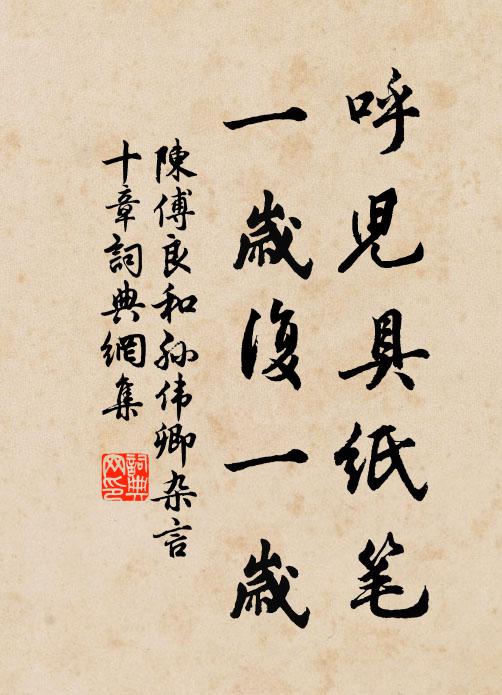 呼児具纸笔
一歲復一歲
陳傅良和孙伟卿杂言
十章詞典網集
詞典网印